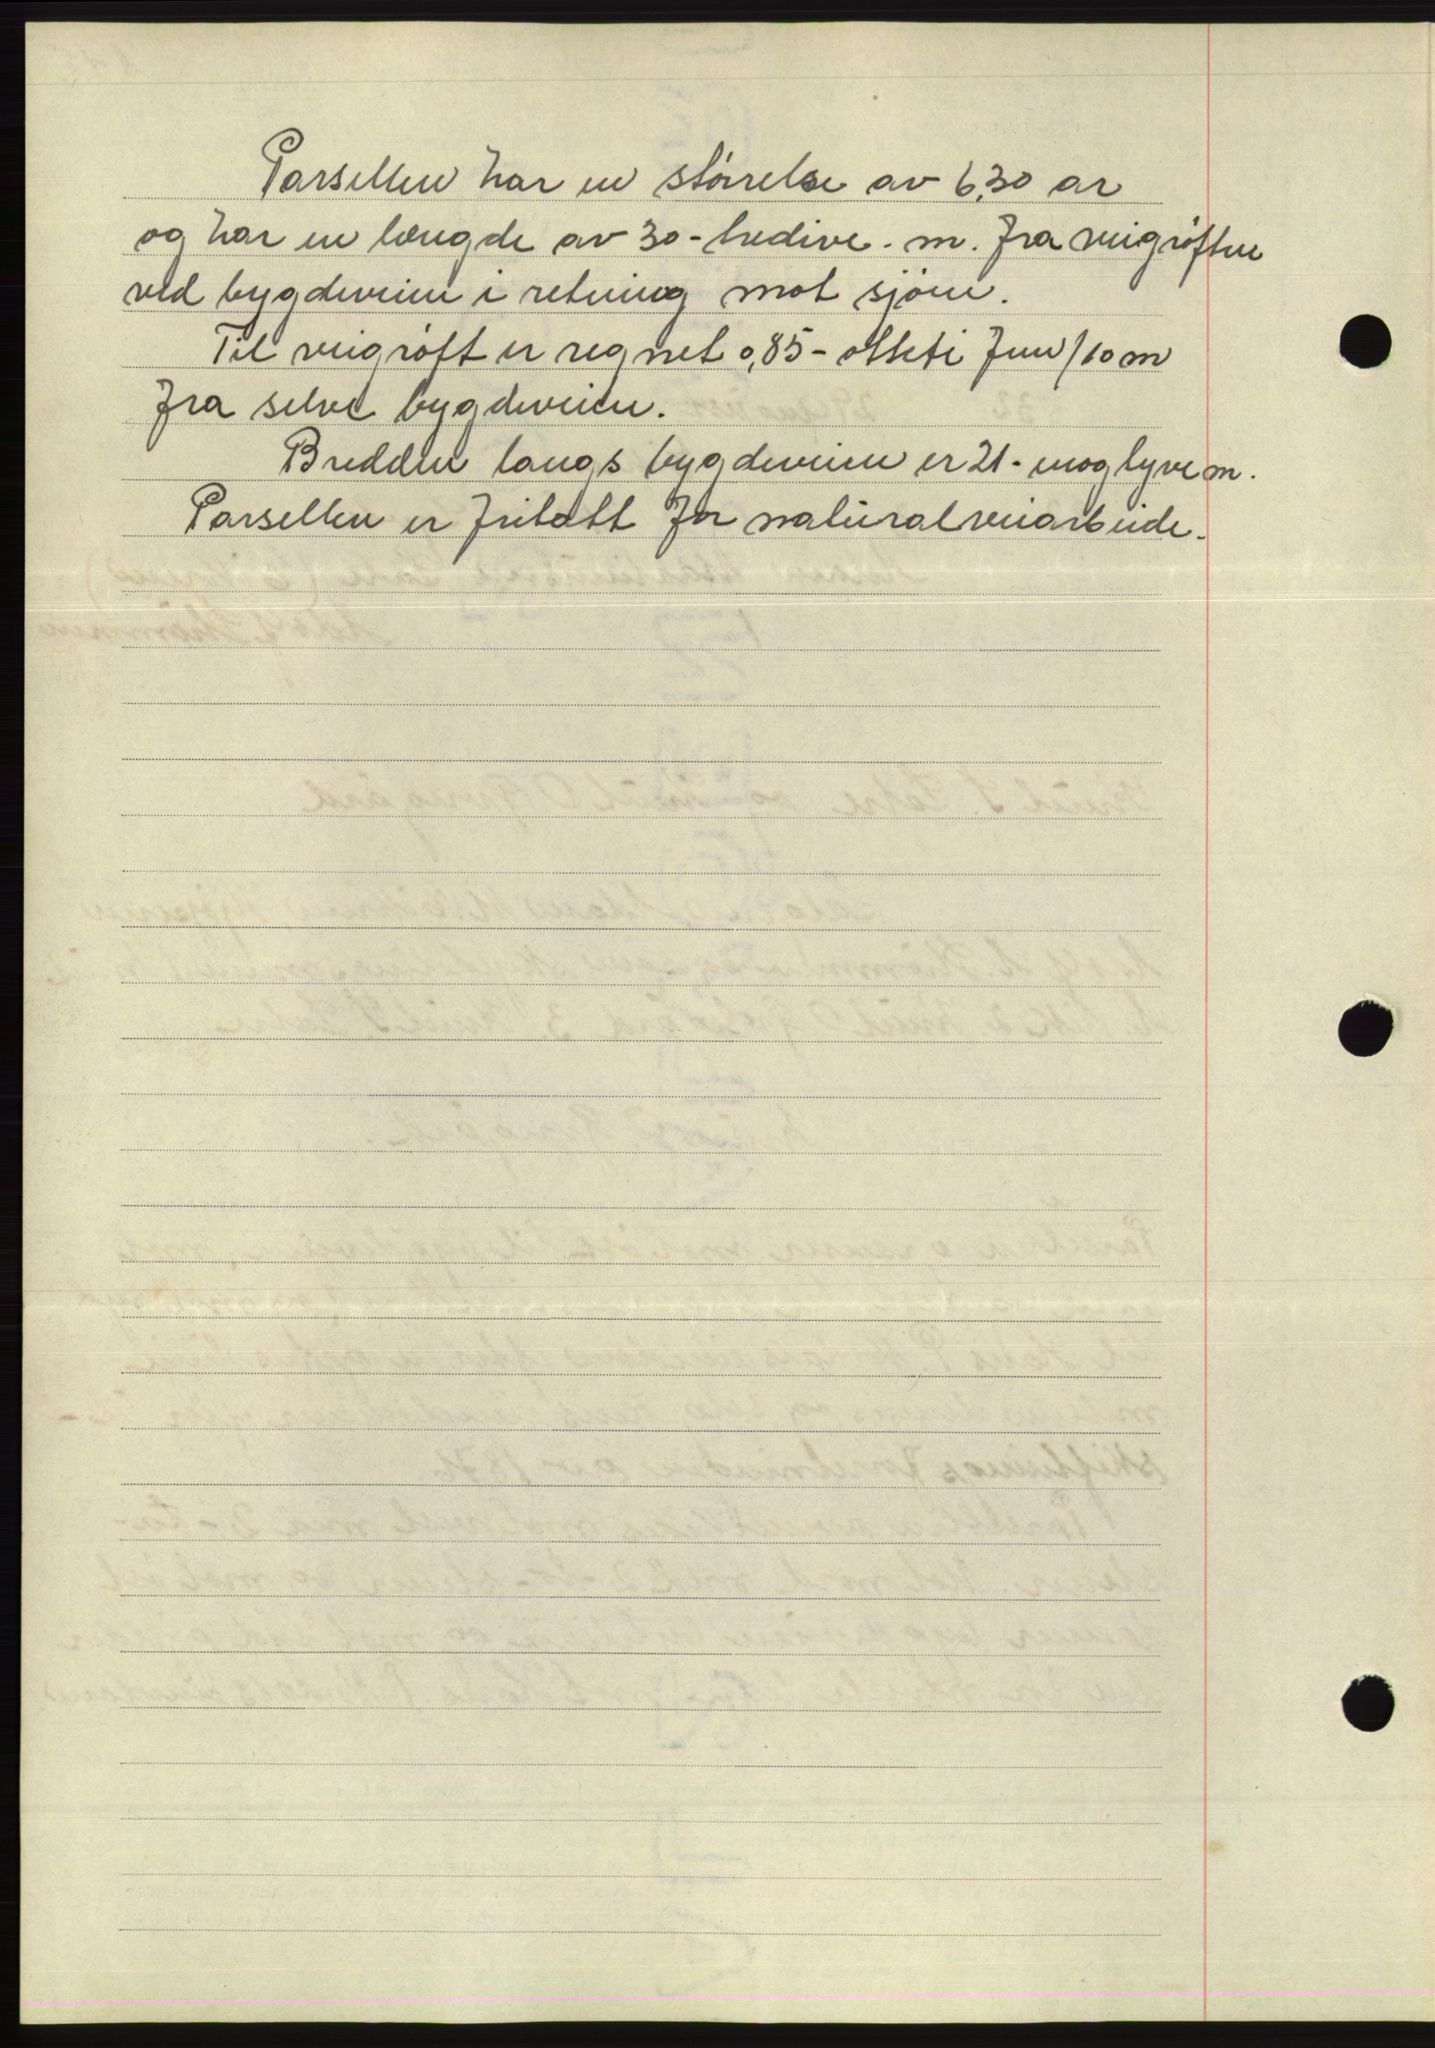 Parsellen har en størrelse av 6,30 ar
og har en længde av 30 - tredive - m. fra veigrøften
ved bygdeveien i retning mot sjøen.
Til veigrøft er regnet 0,85 - otteti fem/10 m
fra selve bygdeveien.
Bredden langs bygdeveien er 21 - enogtyve m.
Parsellen er fritatt for naturalveiarbeide.